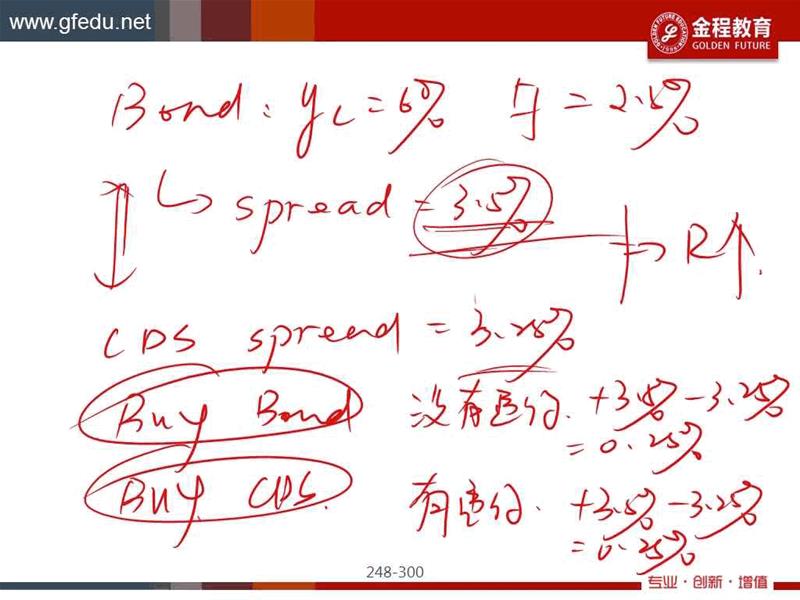 www.gfedu.net
金程教育
GOLDEN FUTURE
Bond: yc = 6% y = 2.5%
↳ spread = 3.5%
→ R↑.
CDS spread = 3.25%
Buy Bond 没有违约. +3.5% - 3.25%
= 0.25%
Buy CDS. 有违约. +3.5% - 3.25%
= 0.25%
248-300
专业·创新·增值